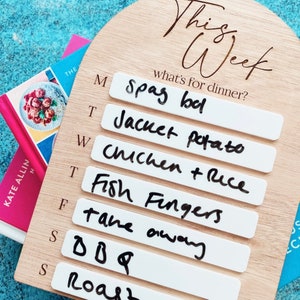 This
Week
what's for dinner?
M Spag bol
T Jacket Potato
W Chicken + Rice
T Fish Fingers
F take away
S BBQ
S Roast
KATE ALLIN
THE